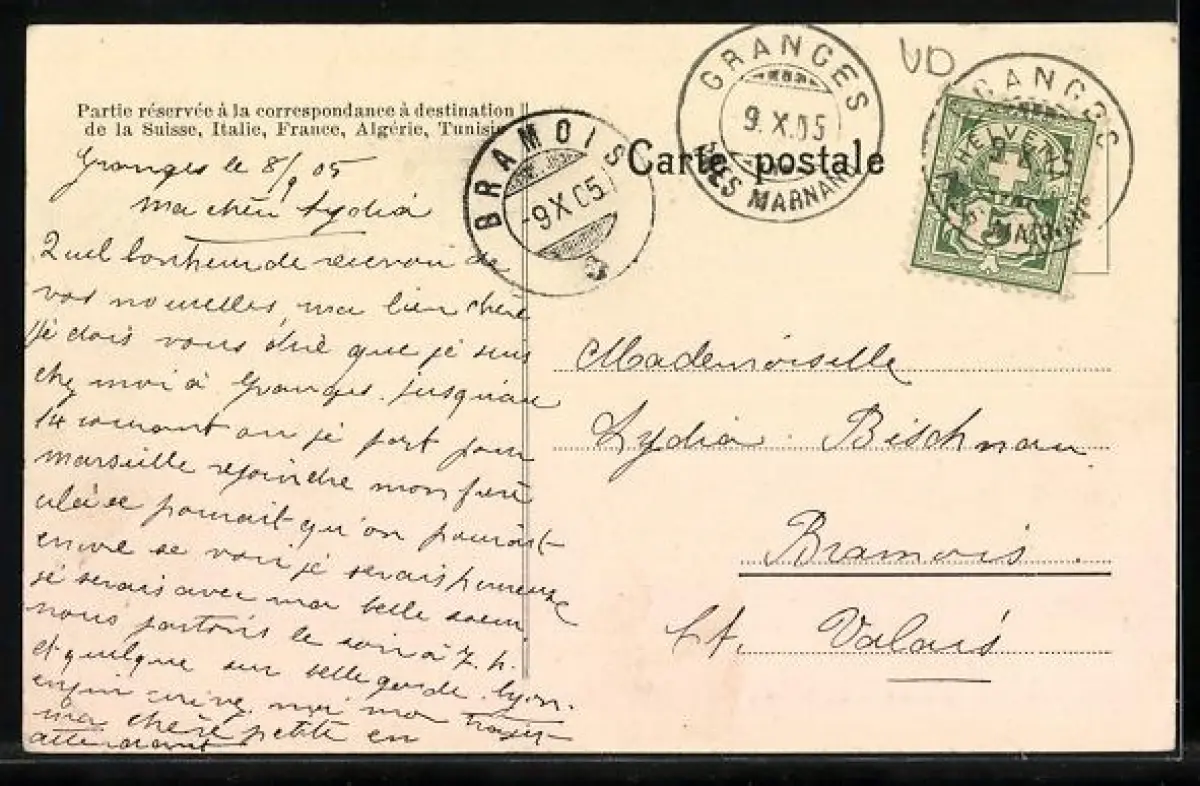 Partie réservée à la correspondance à destination
de la Suisse, Italie, France, Algérie, Tunisie
Granges le 8/9 05
ma chère Lydia
Quel bonheur de recevoir de
vos nouvelles, ma bien chère
je dois vous dire que je suis
chez moi à Granges. jusqu'au
14 courant ou je part pour
marseille rejoindre mon frère
pourait qu'on pourait
encore se voir je serais heureuse
je serais avec ma belle soeur
nous partons le soir à 7. h.
et quelque sur bellegarde. Lyon.
enfin moi ma
ma chère petite en
attendant
BRAMOIS
-9 X 05
GRANGES
9. X. 05
PRÈS MARNAND
Carte postale
VD
GRANGES
HELVETIA
5
MARNAND
Mademoiselle
Lydia Bischnau
Bramois.
Ct. Valais